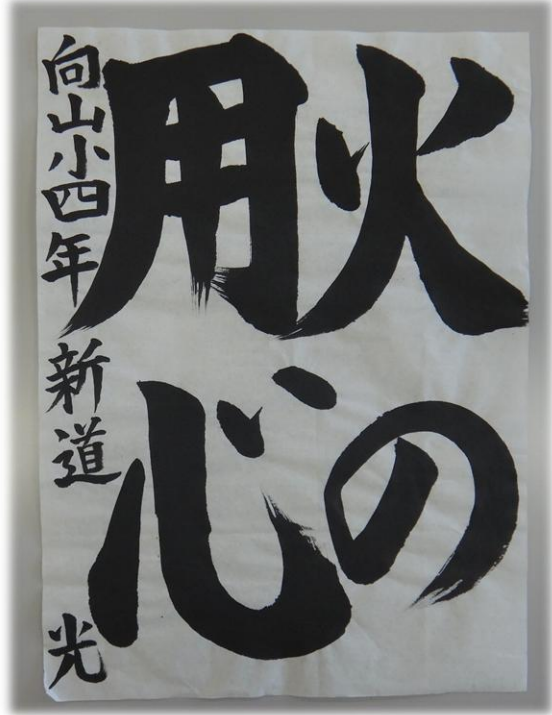 火の
用心
向山小四年 新道 光